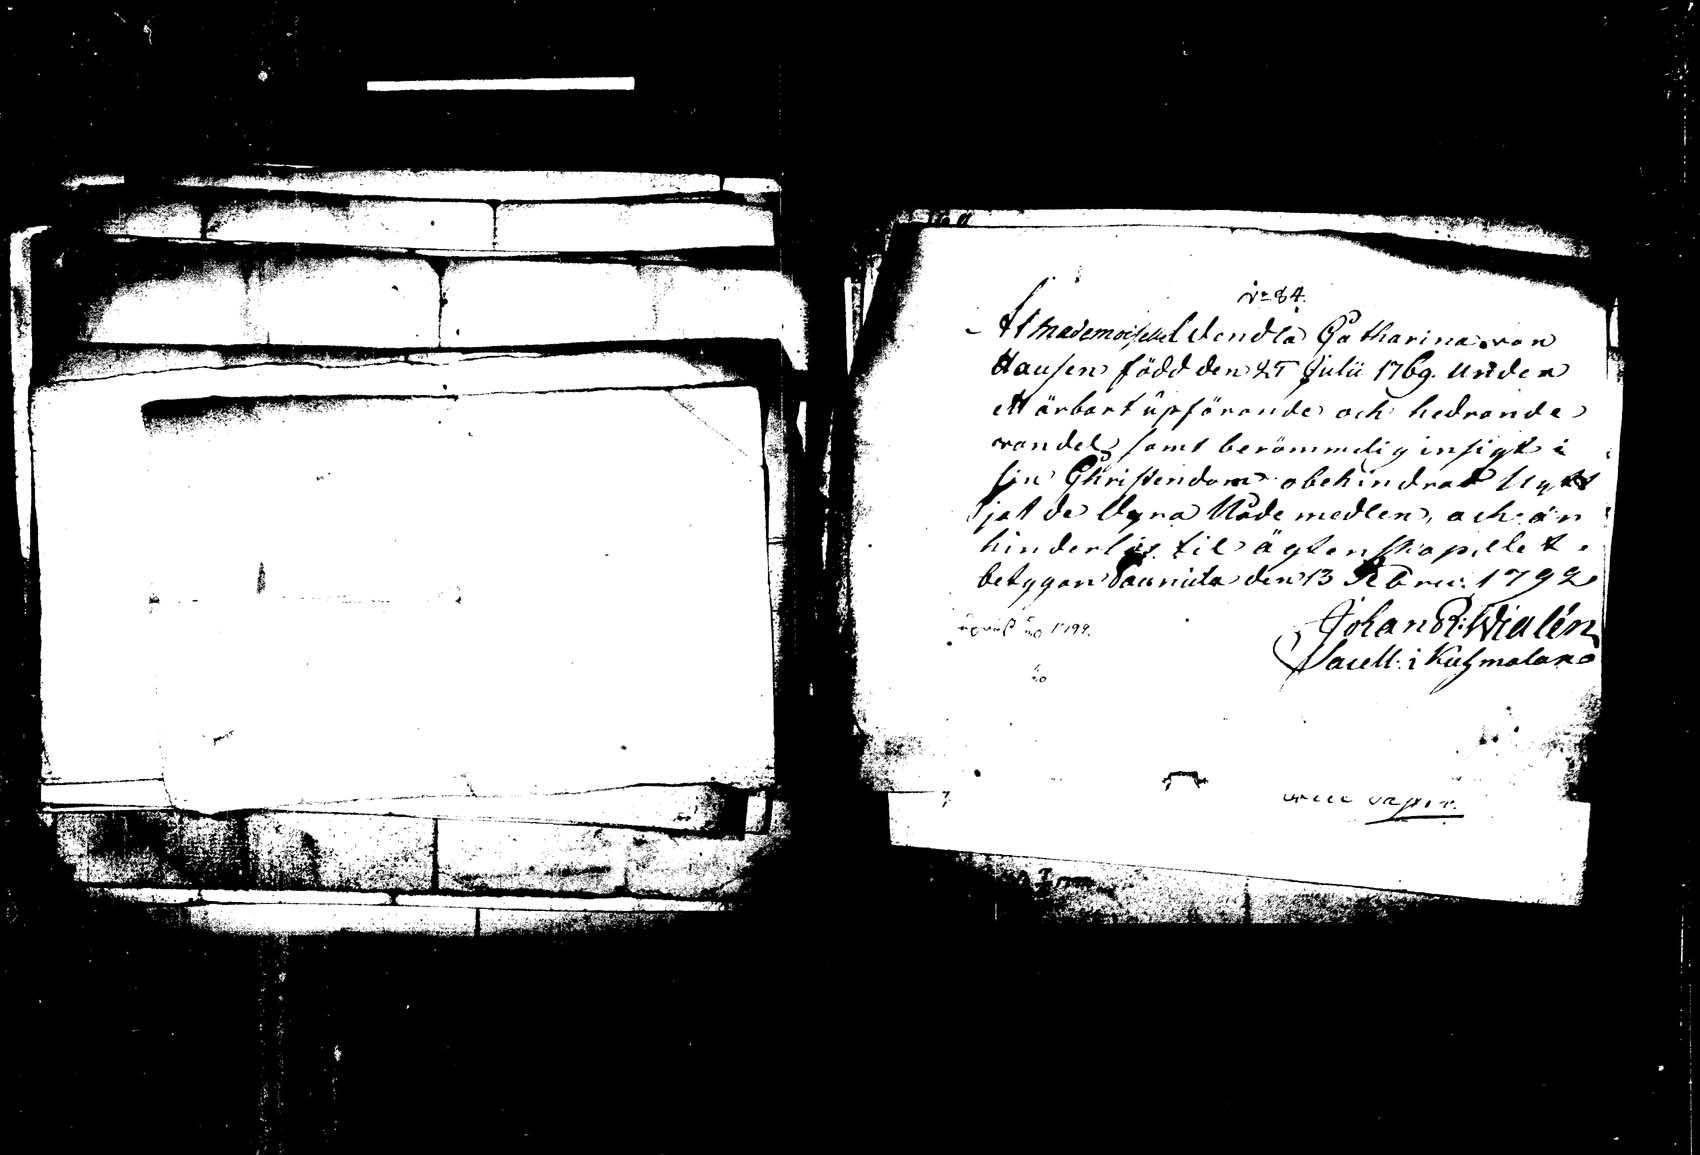 No 84.
At Mademoiselle Vendla Catharina von
Hausen född den 25 Julii 1769. Under
ett ärbart upförande och hedrande
vandel, samt berömmelig insigt i
sin Christendom obehindrat nytt
jat de Dyra Nåde medlen, och är
hinderlös til ägtenskap, slikt
betygar Daunila den 13 Febru: 1792
Johan R: Widlén
Sacell: i Kulsmalax